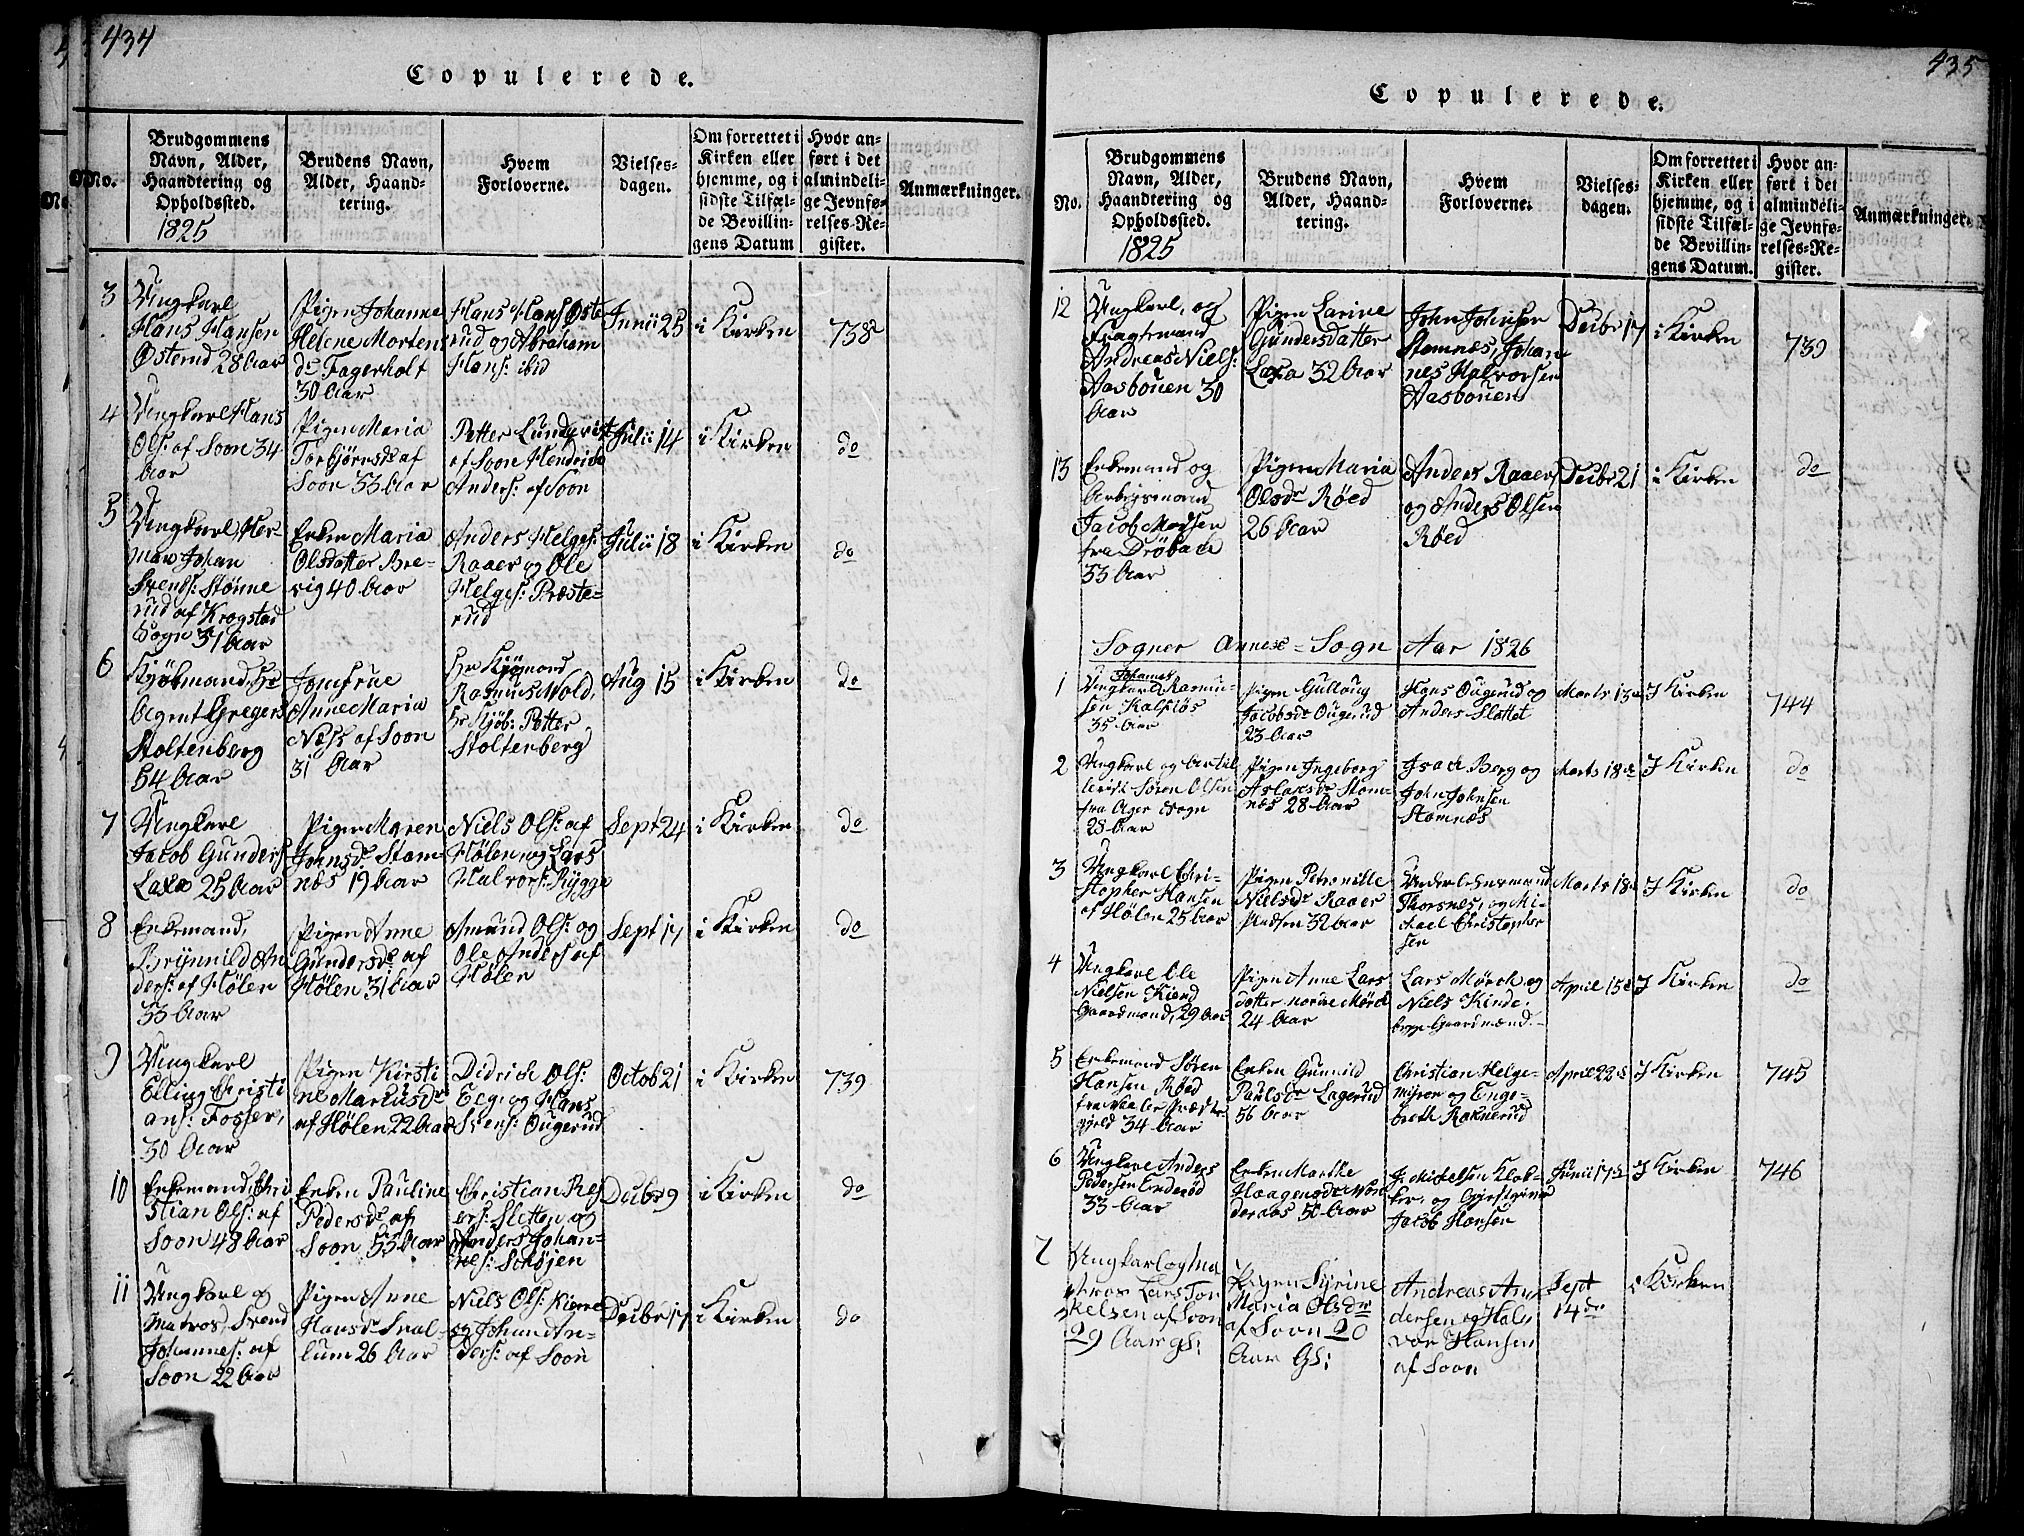 434
Copulerede.
No.
Brudgommens
Navn, Alder,
Haandtering og
Opholdssted.
1825
Brudens Navn,
Alder, Haand-
tering.
Hvem
Forloverne.
Vielses-
dagen.
Om forrettet i
Kirken eller
hjemme, og i
sidste Tilfæl-
de Bevillin-
gens Datum
Hvor an-
ført i det
almindeli-
ge Jevnfø-
relses-Re-
gister.
Anmærkninger.
3
Ungkarl
Hans Hansen
Østerud 28 Aar
Pigen Johanne
Helene Mortens
dr Fagerholt
30 Aar
Hans Hans Øste
rud og Abraham
Hans: ibid
Junii 25
i Kirken
738
4
Ungkarl Hans
Ols: af Soon 34
Aar
Pigen Maria
Torbjørnsdr af
Soon 33 Aar
Petter Lundqvist
af Soon Hendrich
Anders: af Soon
Julii 14
i Kirken
do
5
Ungkarl, Her-
man Johan
Svends: Stønne
rud af Krogstad
Sogn 31 Aar
Enken Maria
Olsdatter Bre-
vig 40 Aar
Anders Helges:
Raaer og Ole
Helges: Præste-
rud
Julii 18
i Kirken
do
6
Kjøbmand, Hr
Agent Gregers
Stoltenberg
54 Aar
Jomfrue
Anne Maria
Næss af Soon
31 Aar
Hr Kjømand
Rasmus Wold,
Hr Kjøb: Petter
Stoltenberg
Aug 15
i Kirken
do
7
Ungkarl
Jacob Gunders
Laxa 25 Aar
Pigen Maren
Johnsdr Stam
næs 19 Aar
Niels Ols: af
Hølen og Lars
Halvors: Rygge
Sept 24
i Kirken
do
8
Enkemand,
Brynnild An
ders: af Hølen
33 Aar
Pigen Anne
Gundersdr af
Hølen 31 Aar
Amund Ols: og
Ole Anders af
Hølen
Sept 17
i Kirken
do
9
Ungkarl
Elling Christi
ans: Fosser,
30 Aar
Pigen Kirsti
ne Markusdr
af Hølen 22 Aar
Didrich Ols:
Elge og Hans
Svens: Ougerud
Octob 21
i Kirken
739
10
Enkemand, Chri
stian Ols: af
Soon 48 Aar
Enken Pauline
Pedersdr af
Soon 53 Aar
Christian
ers: Sletten og
Anders Johan-
nes: Schøjen
Decbr 9
i Kirken
do
11
Ungkarl og
Matros, Svend
Johannes: af
Soon 22 Aar
Pigen Anne
Hansdr
lum 26 Aar
Niels Ols:
og Johan An-
ders: af Soon
Decbr 17
i Kirken
do
435
Copulerede.
No.
Brudgommens
Navn, Alder,
Haandtering og
Opholdssted.
1825
Brudens Navn,
Alder, Haand-
tering.
Hvem
Forloverne.
Vielses-
dagen.
Om forrettet i
Kirken eller
hjemme, og i
sidste Tilfæl-
de Bevillin-
gens Datum.
Hvor an-
ført i det
almindeli-
ge Jevnfø-
relses-Re-
gister.
Anmærkninger.
12
Ungkarl, og
Andreas Niels:
Aasbonen 30
Aar
Pigen Larine
Gundersdatter
Laxa 32 Aar
John Johnsen
Stamnæs, Johan
nes Halvorsen
Aasbonen
Decbr 17
i Kirken
739
13
Enkemand og
Arbejsmand
Jacob Madsen
fra Drøbach
33 Aar
Pigen Maria
Olsdr Røed
26 Aar
Anders Raaer
og Anders Olsen
Røed
Decbr 21
i Kirken
do
Sogner Annex-Sogn Aar 1826
1
Johannes
Ungkarl Rasmus-
sen
35 Aar
Pigen Gullaug
Jacobsdr Ougerud
23 Aar
Hans Ougerud og
Anders Slottet
Marts 13de
I Kirken
744
2
Ungkarl og Artil
lerist Søren Olsen
fra Ager Sogn
28 Aar
Pigen Ingeborg
Aslaksdr Stam-
næs 28 Aar
Isach Berg og
John Johnsen
Stamnæs
Marts 18de
I Kirken
do
3
Ungkarl Chri-
stopher Hansen
af Hølen 25 Aar
Pigen Petronille
Nielsdr Raaer
32 Aar
Thorsnæs, og Mi-
chael Christopher
sen
Marts 18de
I Kirken
do
4
Ungkarl Ole
Nielsen Kiend
Gaardmand, 29 Aar
Pigen Anne Lars
datter Mørch
24 Aar
Lars Mørch og
Niels Kinde.
begge Gaardmænd.
April 15de
I Kirken
do
5
Enkemand Søren
Hansen Røed
fra Vaaler Præste
gjeld 34 Aar
Enken Gunnild
Paulsdr Lagerud
56 Aar
Christian Helge-
og Enge-
breth Raknerud
April 22de
I Kirken
745
6
Ungkarl Anders
Pedersen
33 Aar
Enken Marthe
Haagensdr
50 Aar
J. Michelsen Klok-
ker, og Gjestgiver
Jacob Hansen
Junii 17de
I Kirken
746
7
Ungkarl og Ma
tros Lars Tor
kelsen af Soon
29 Aar gl:
Pigen Syrine
Maria Olsdr
af Soon 20
Aar Gl:
Andreas An
dersen og Hal
vor Hansen
af Soon
Sept
14de
i Kirken